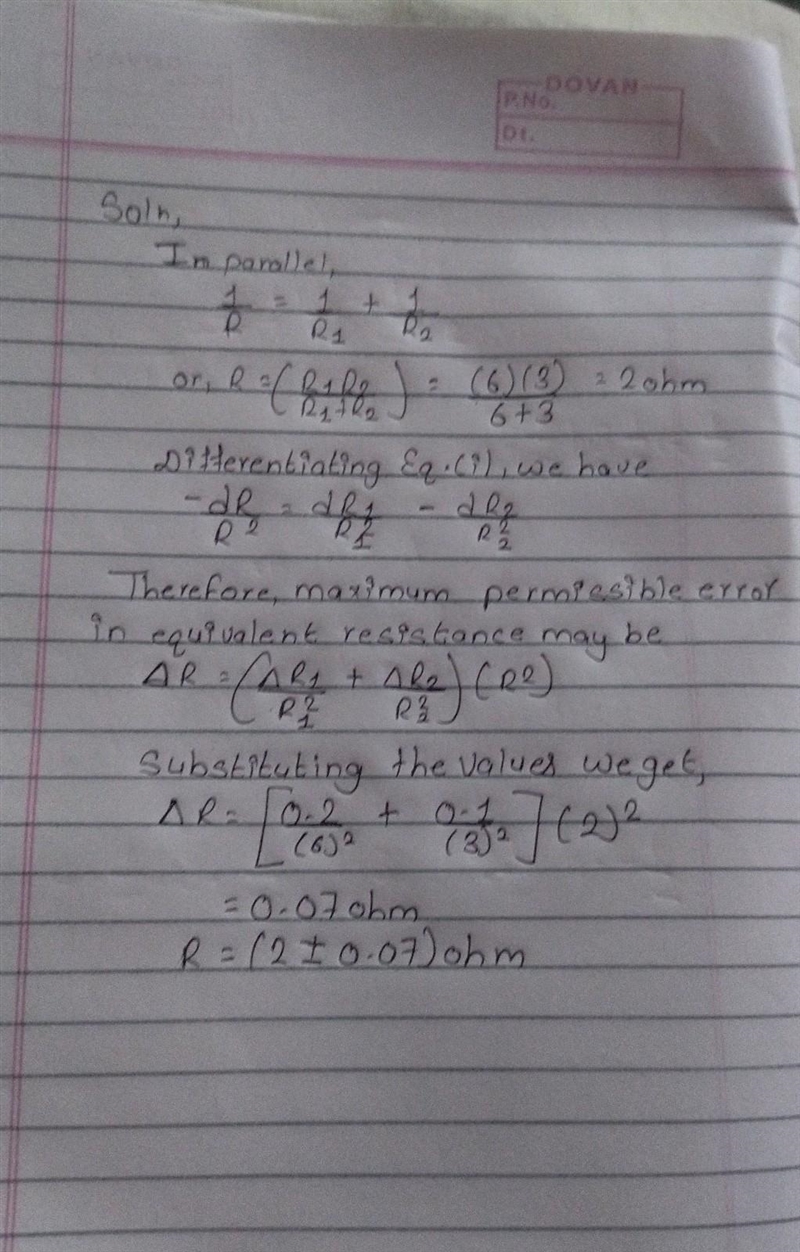 DOVAN
P.No.
Dt.
Soln,
In parallel,
1/R = 1/R1 + 1/R2
or, R = (R1R2/R1+R2) = (6)(3)/6+3 = 2 ohm
Differentiating Eq.(i), we have
-dR/R² = dR1/R1² - dR2/R2²
Therefore, maximum permissible error
in equivalent resistance may be
ΔR = (ΔR1/R1² + ΔR2/R2²)(R²)
Substituting the values we get,
ΔR = [0.2/(6)² + 0.1/(3)²](2)²
= 0.07 ohm
R = (2 ± 0.07) ohm